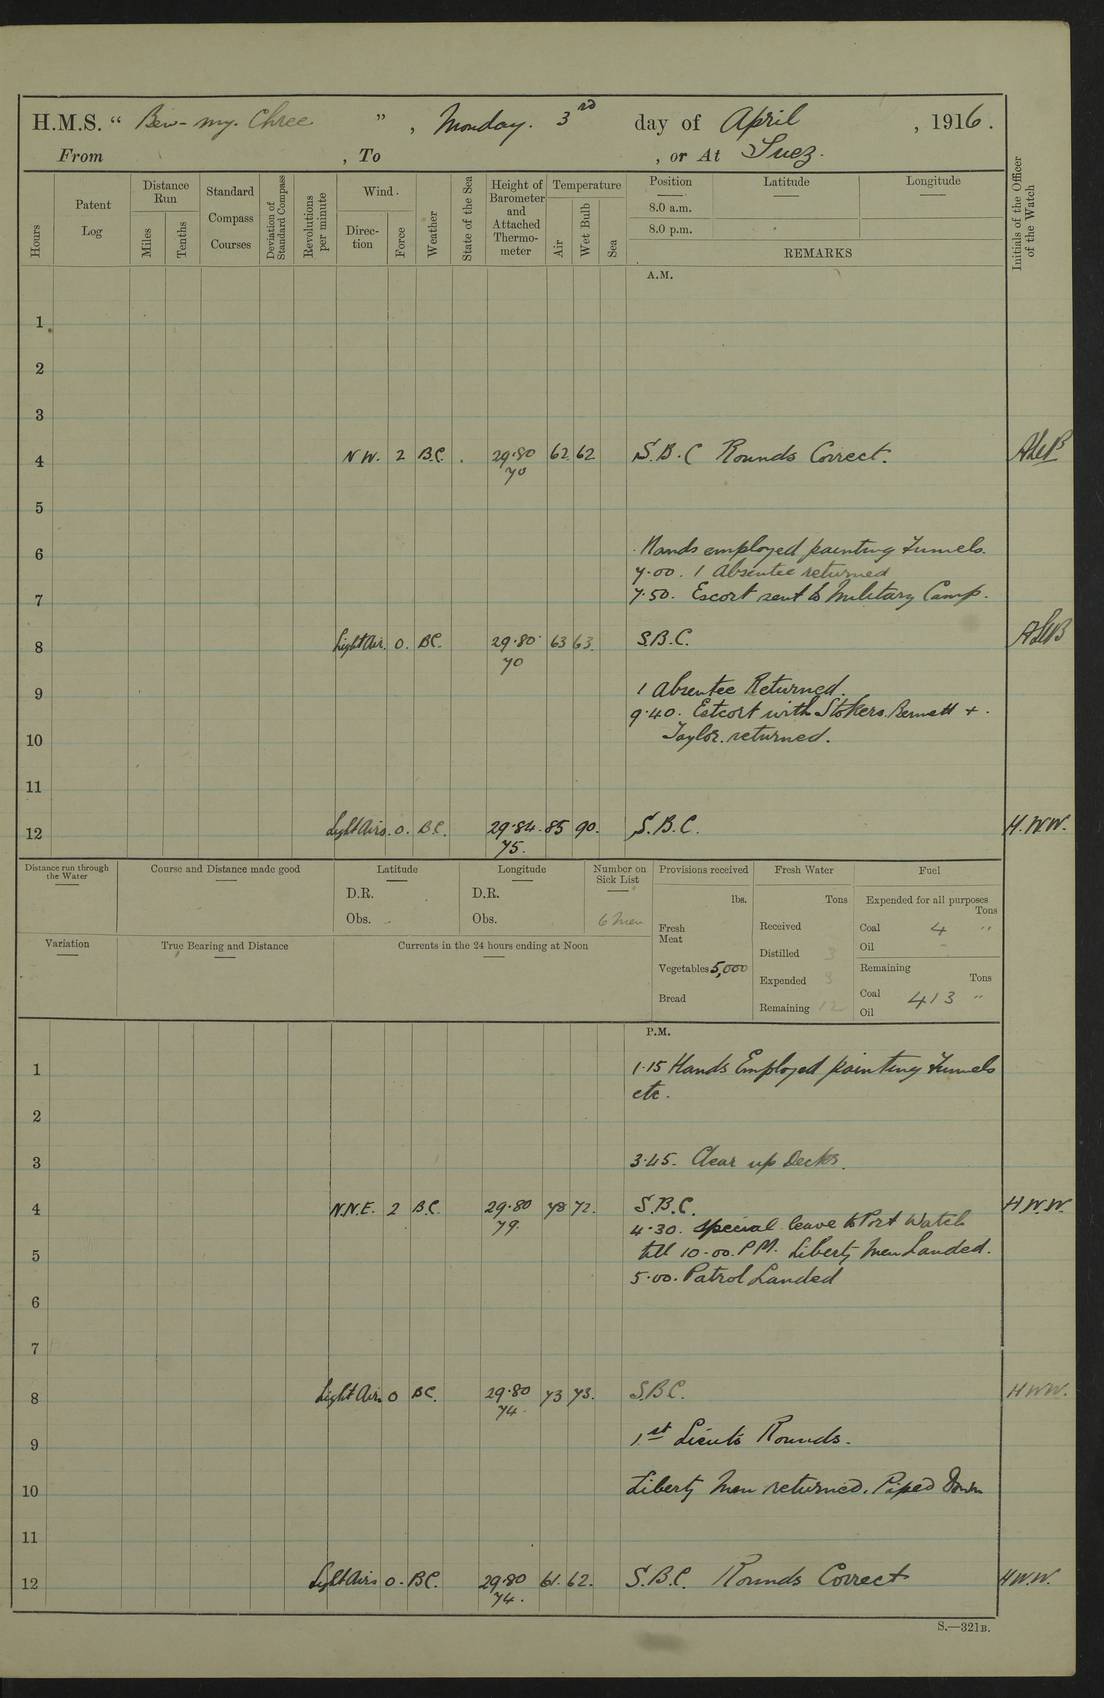 H.M.S. “ Ben-my-Chree ” , Monday. 3rd day of April , 1916.
From , To , or At Suez.
Hours
Patent Log
Distance Run
Miles
Tenths
Standard Compass Courses
Deviation of Standard Compass
Revolutions per minute
Wind.
Direction
Force
Weather
State of the Sea
Height of Barometer and Attached Thermometer
Temperature
Air
Wet Bulb
Sea
Position
8.0 a.m.
8.0 p.m.
Latitude
Longitude
REMARKS
Initials of the Officer of the Watch
A.M.
1
2
3
4 N W. 2 B.C. 29.80 62 62 S.B.C Rounds Correct.
70
5
6 Hands employed painting Funnels.
7.00. 1 Absentee returned
7 7.50. Escort sent to Military Camp.
8 Light Air. 0. BC. 29.80 63 63 S.B.C.
70
9 1 Absentee Returned.
9.40. Estcort with Stokers. Bennett +
10 Taylor. returned.
11
12 Light Airs. 0. B.C. 29.84. 85 90. S.B.C. H.W.W.
75.
Distance run through the Water
Course and Distance made good
Latitude
D.R.
Obs.
Longitude
D.R.
Obs.
Number on Sick List
6 men
Provisions received
lbs.
Fresh Meat
Vegetables 5,000
Bread
Fresh Water
Tons
Received
Distilled 3
Expended 3
Remaining 12
Fuel
Expended for all purposes
Tons
Coal 4 "
Oil -
Remaining
Tons
Coal 413 "
Oil
Variation
True Bearing and Distance
Currents in the 24 hours ending at Noon
P.M.
1 1.15 Hands Employed painting Funnels
etc.
2
3 3.45. Clear up Decks.
4 N.N.E. 2 B.C. 29.80 78 72. S.B.C. H.W.W.
79
4.30. Special leave to Port Watch
5 till 10.00. P.M. Liberty Men Landed.
5.00. Patrol Landed
6
7
8 Light Airs 0 BC. 29.80 73 73. S.B.C. HWW.
74
9 1st Lieuts Rounds.
10 Liberty Men returned. Piped Down
11
12 Light Airs 0. BC. 29.80 61. 62. S.B.C. Rounds Correct HW.W.
74.
S.—321B.